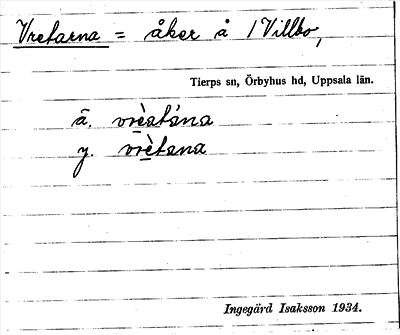 Vretarna = åker å 1 Villbo,
Tierps sn, Örbyhus hd, Uppsala län.
ä. vrèatána
y. vrètana
Ingegärd Isaksson 1934.